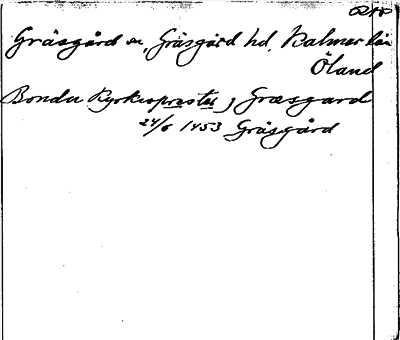 Gräsgård sn, Gräsgård hd, Kalmar län
Öland
Bondu Kyrkioprester j Græsgard
24/6 1453 Gräsgård